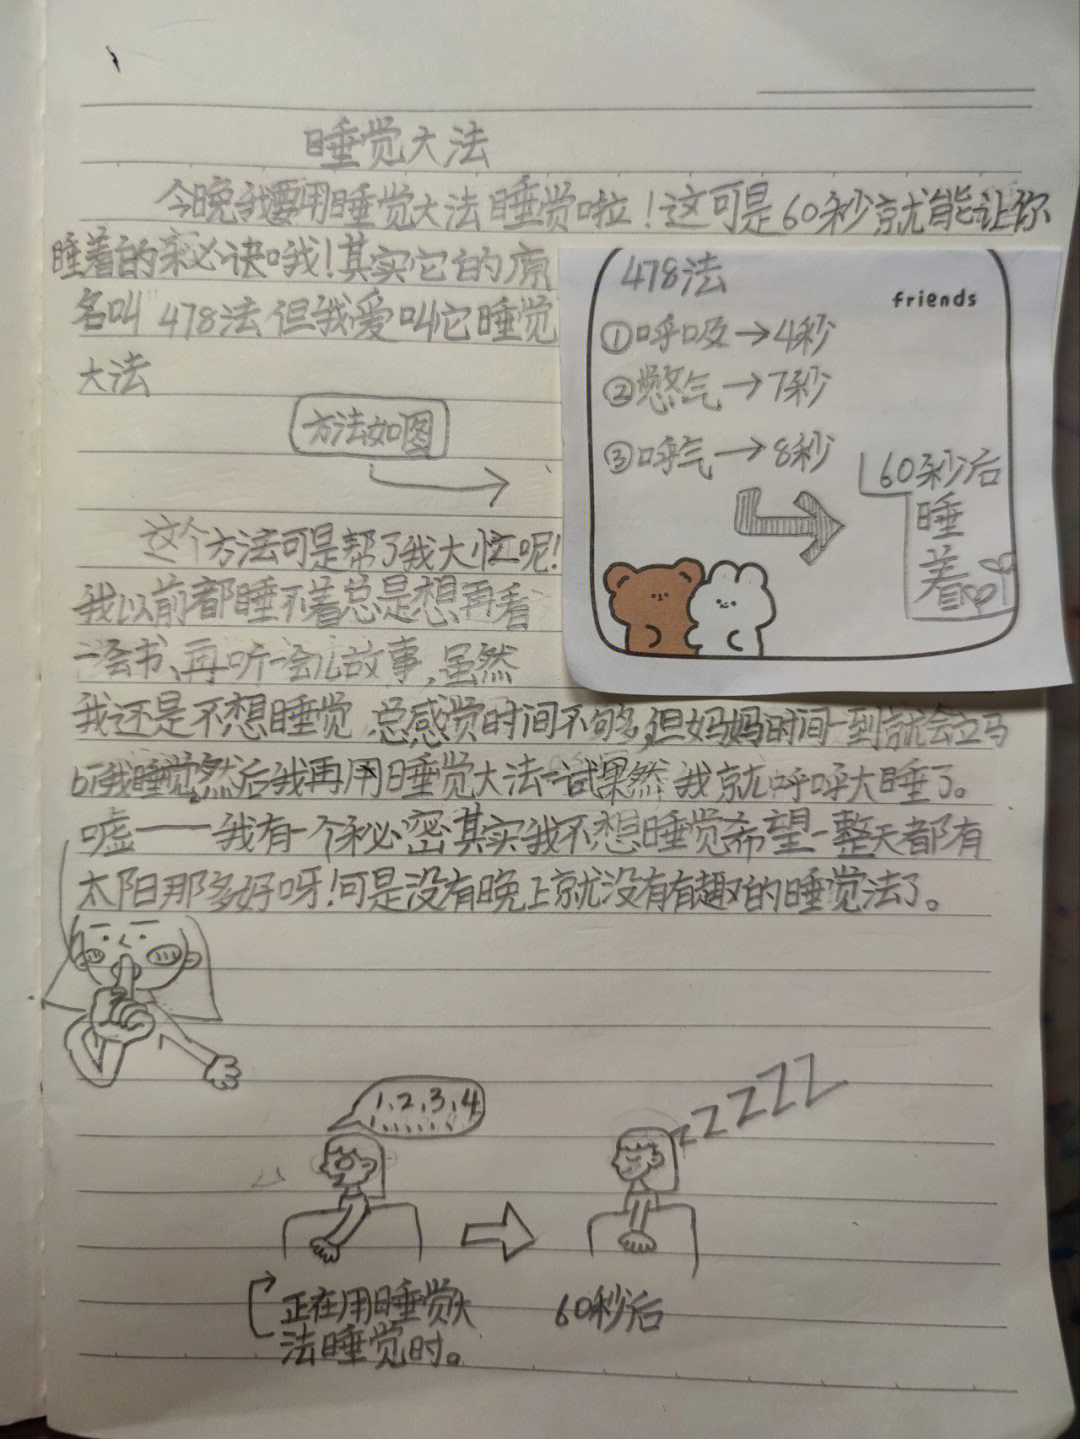 睡觉大法
今晚我要用睡觉大法睡觉啦！这可是60秒就能让你
睡着的秘诀哦！其实它的原
名叫“478法但我爱叫它睡觉
大法
方法如图
478法
friends
①呼吸→4秒
②憋气→7秒
③呼气→8秒
60秒后
睡
着
这个方法可是帮了我大忙呢！
我以前都睡不着总是想再看
一会书、再听一会儿故事，虽然
我还是不想睡觉，总感觉时间不够，但妈妈时间一到就会立马
叫我睡觉，然后我再用睡觉大法一试果然 我就呼呼大睡了。
嘘——我有一个秘密其实我不想睡觉希望一整天都有
太阳那多好呀！可是没有晚上就没有有趣的睡觉法了。
1、2、3、4
......
zZZZZZ
正在用睡觉大
法睡觉时。
60秒后